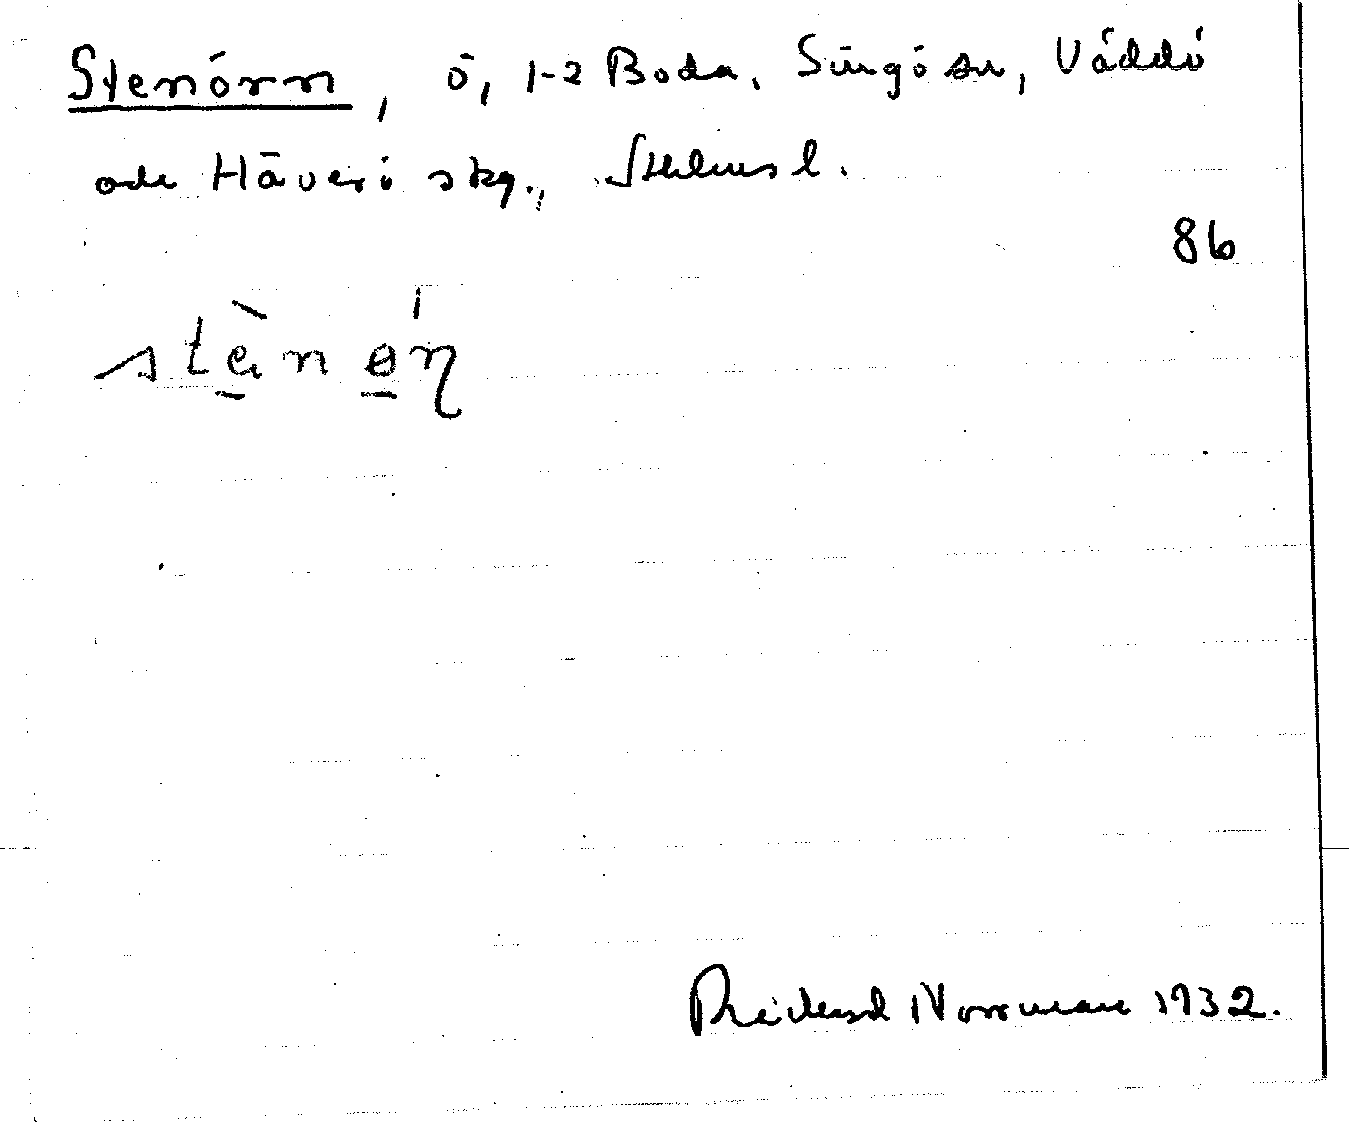 Stenörn, ö, 1-2 Boda, Singö sn, Väddö
och Häverö skg., Sthlms l.
86
stènön
Rickard Norrman 1932.